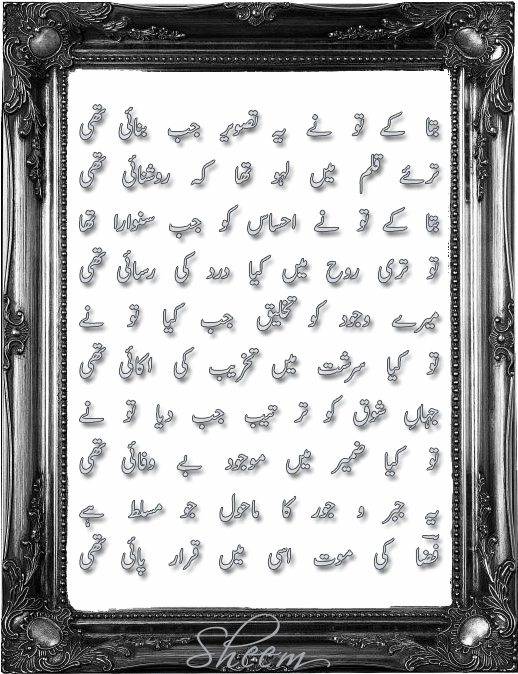 بتا کے تو نے یہ تصویر جب بنائی تھی
ترے قلم میں لہو تھا کہ روشنائی تھی
بتا کے تو نے احساس کو جب سنوارا تھا
تو تری روح میں کیا درد کی رسائی تھی
میرے وجود کو تخلیق جب کیا تو نے
تو کیا سرشت میں تخریب کی اکائی تھی
جہاں شوق کو تر تیب جب دیا تو نے
تو کیا ضمیر میں موجود بے وفائی تھی
یہ جبر و جور کا ماحول جو مسلط ہے
فضا کی موت اسی میں قرار پائی تھی
Sheem